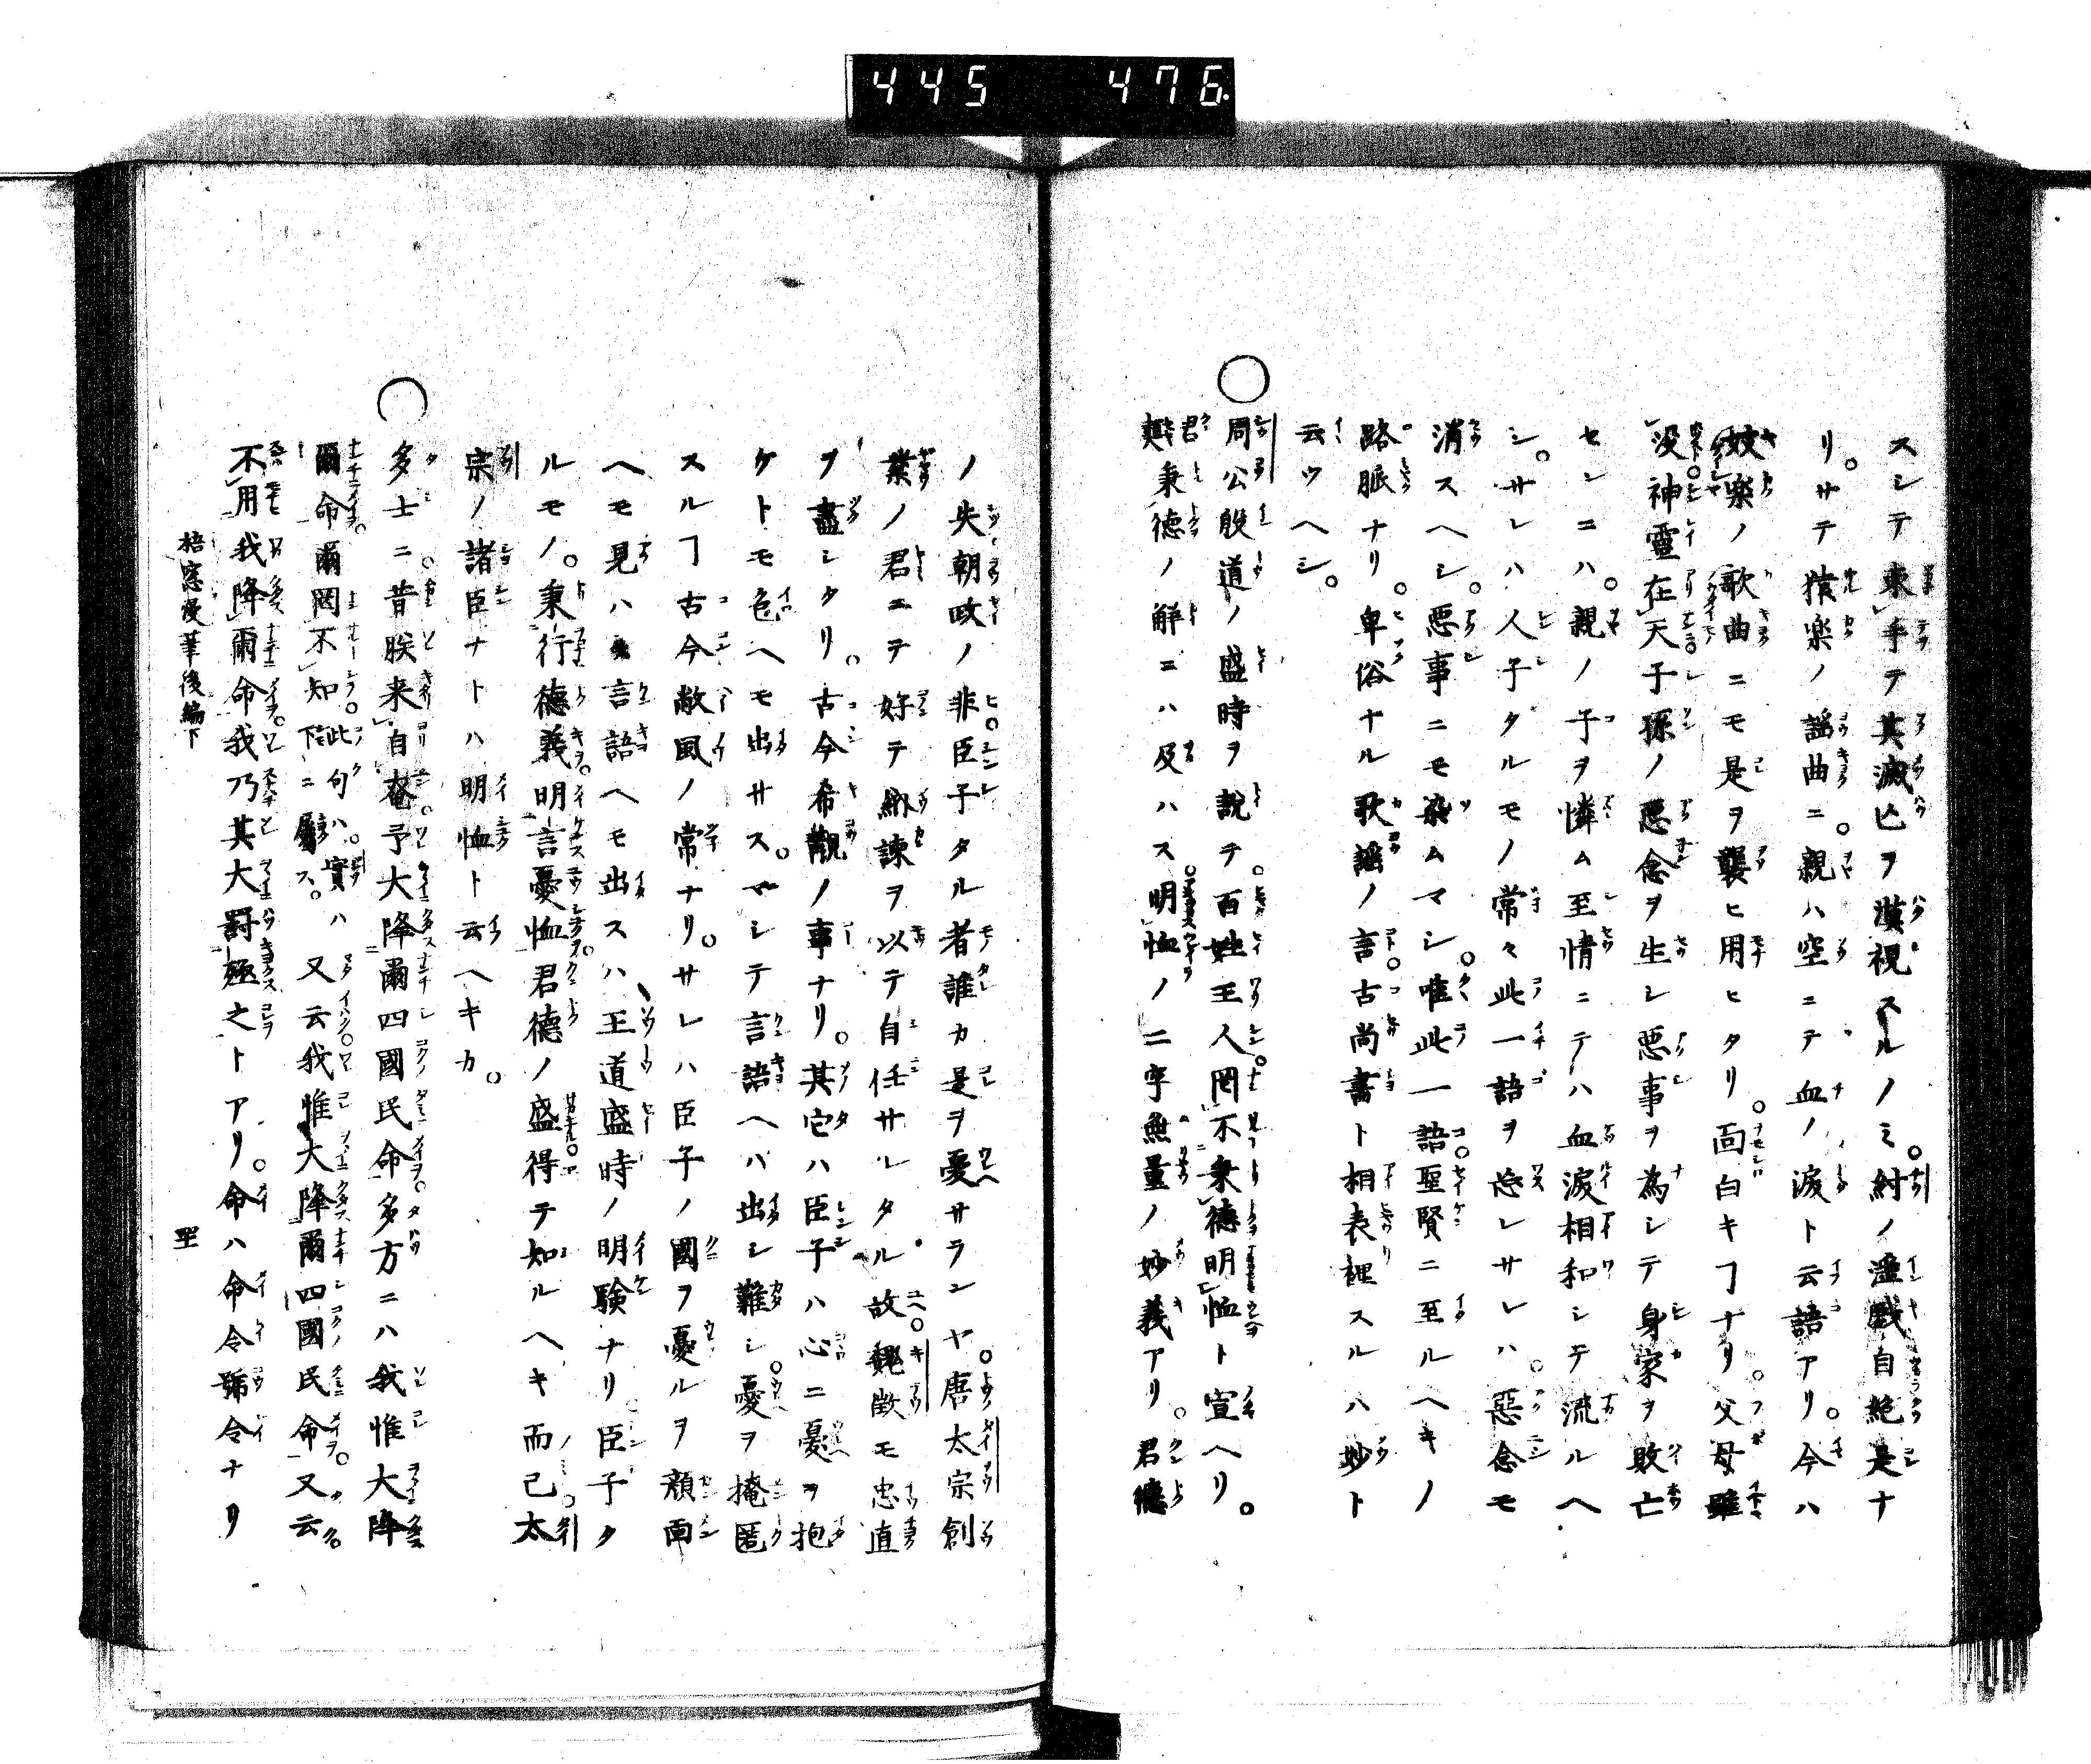 445 476
スシテ束手テ其滅亡ヲ漠視スルノミ。紂ノ滛戯自絶是ナ
リ。サテ猿楽ノ謡曲ニ。親ハ空ニテ血ノ涙ト云語アリ。今ハ
妓楽ノ歌曲ニモ是ヲ襲ヒ用ヒタリ。面白キヿナリ。父母雖
没神霊在天子孫ノ悪念ヲ生シ悪事ヲ為シテ身家ヲ敗亡
センニハ。親ノ子ヲ憐ム至情ニテハ血涙相和シテ流ルヘ
シ。サレハ人子タルモノ常々此一語ヲ忘レサレハ。惡念モ
消スヘシ。悪事ニモ染ムマシ。唯此一語。聖賢ニ至ルヘキノ
路脈ナリ。卑俗ナル歌謡ノ言。古尚書ト相表裡スルハ妙ト
云ツヘシ。
○周公殷道ノ盛時ヲ説テ。百姓王人。罔不秉徳明恤ト宣ヘリ。
君奭秉徳ノ解ニハ及ハス。明恤ノ二字無量ノ妙義アリ。君徳
ノ失朝政ノ非臣子タル者誰カ是ヲ憂サランヤ。唐太宗創
業ノ君ニテ好テ納諫ヲ以テ自任サレタル故。魏徴モ忠直
ヲ盡シタリ。古今希覯ノ事ナリ。其它ハ臣子ハ心ニ憂ヲ抱
ケトモ色ヘモ出サス。マシテ言語ヘハ出シ難シ。憂ヲ掩匿
スルヿ古今敝風ノ常ナリ。サレハ臣子ノ國ヲ憂ルヲ顔面
ヘモ見ハ言語ヘモ出スハ王道盛時ノ明験ナリ。臣子タ
ルモノ。秉行徳義明言憂恤君徳ノ盛得テ知ルヘキ而已。太
宗ノ諸臣ナトハ明恤ト云ヘキカ。
○多士ニ。昔朕来自奄。予大降爾四國民命。多方ニハ我惟大降
爾命爾罔不知。此句ハ。實ハ下ニ屬ス。又云我惟大降爾四國民命。又云
不用我降爾命。我乃其大罸殛之トアリ。命ハ命令號令ナリ
梧窓漫筆後編下